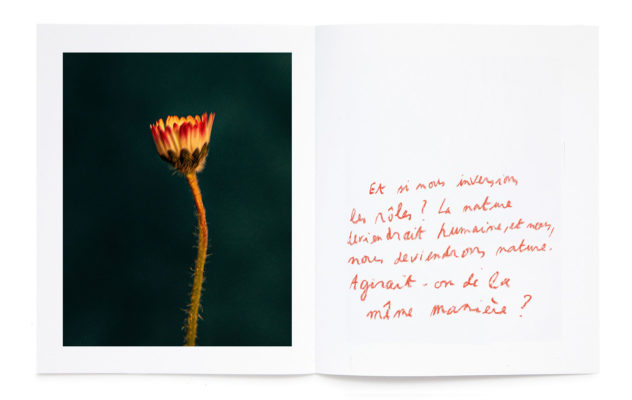 Et si nous inversions
les rôles ? La nature
deviendrait humaine, et nous,
nous deviendrons nature.
Agirait-on de la
même manière ?